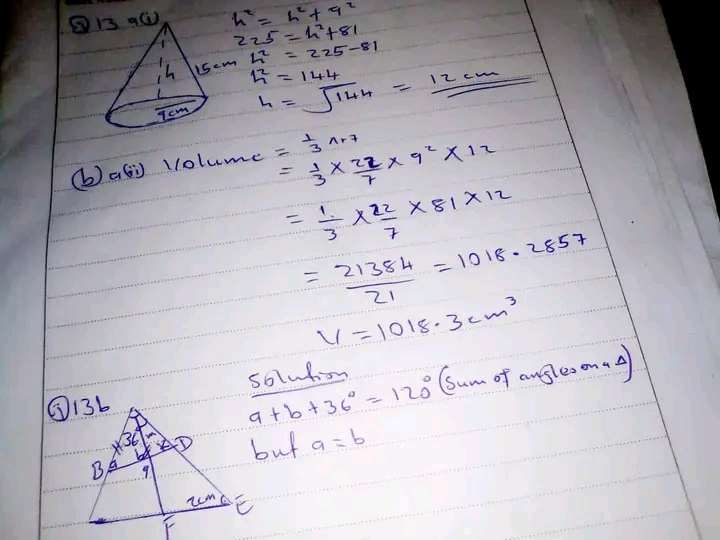 ⑤ 13 a(i)
h² = h² + 9²
225 = h² + 81
h² = 225 - 81
h² = 144
h = √144 = 12 cm
h
15cm
9cm
(b) a(ii) Volume = 1/3
= 1/3 × 22/7 × 9² × 12
= 1/3 × 22/7 × 81 × 12
= 21384/21 = 1018.2857
V = 1018.3cm³
Solution
i) 13b
a + b + 36° = 120° (Sum of angles on a Δ)
but a = b
36°
B a b D
2cm E
F